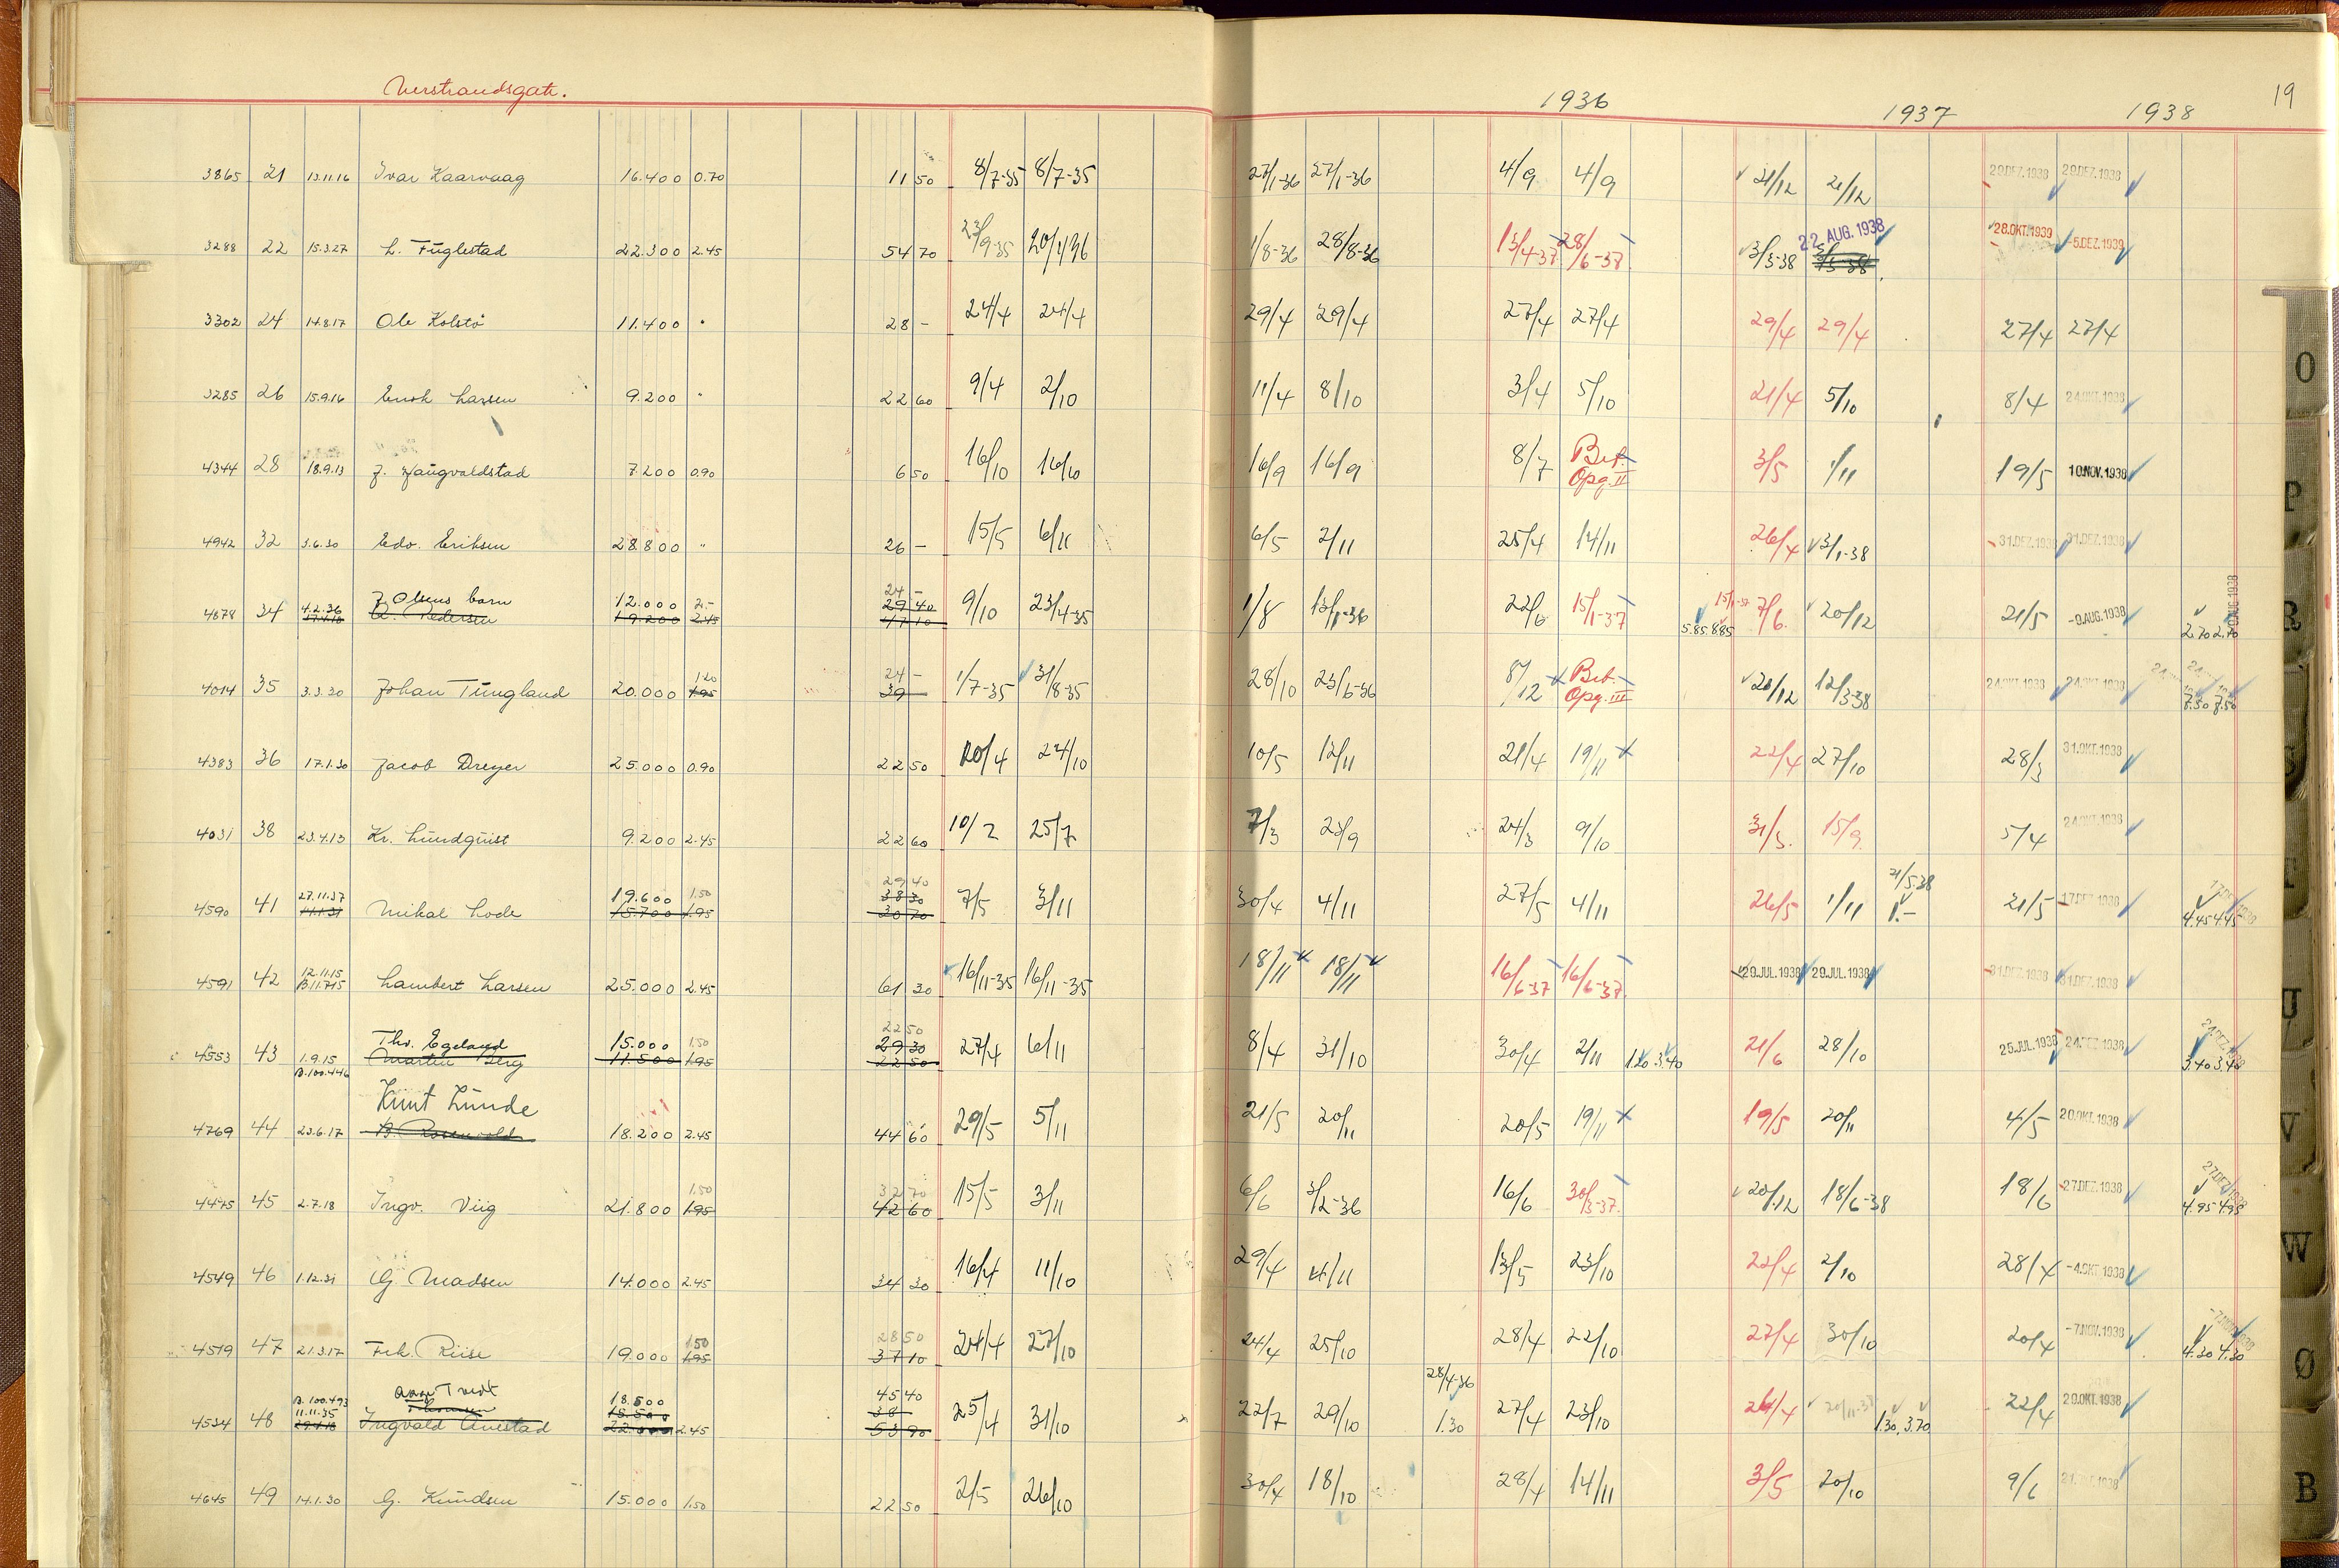 Verstrandsgate.
1936 1937 1938 19
3865 21 13.11.16 Ivar Kaarvaag 16.400 0.70 11 50 8/7-35 8/7-35 27/1-36 27/1-36 4/9 4/9 21/12 21/12 29.DEZ.1938 29.DEZ.1938
22.AUG.1938
3288 22 15.3.27 L. Fuglestad 22.300 2.45 54 70 23/9-35 20/1/36 1/8-36 28/8-36 13/4-37 28/6-37 3/3-38 28.OKT.1939 -5.DEZ.1939
3302 24 14.8.17 Ole Kolstö 11.400 " 28 - 24/4 24/4 29/4 29/4 27/4 27/4 29/4 29/4 27/4 27/4
3285 26 15.9.16 Enok Larsen 9.200 " 22 60 9/4 2/10 11/4 8/10 3/4 5/10 21/4 5/10 8/4 24.OKT.1938
4344 28 18.9.13 J. Haugvaldstad 7.200 0.90 6 50 16/10 16/10 16/9 16/9 8/7 Bet. Opg. II 3/5 1/11 19/5 10.NOV.1938
4942 32 3.6.30 Edv. Eriksen 28.800 " 26 - 15/5 6/11 6/5 2/11 25/4 14/11 26/4 3/1-38 31.DEZ.1938 31.DEZ.1938
J. Olsens barn 12.000 2.- 24 - 15/1-37 9.AUG.1938
4678 34 4.2.36 A. Pedersen 19.200 2.45 29 40 9/10 23/4-35 1/8 13/1-36 22/6 15/1-37 5.85 8.85 7/6 20/12 21/5 -9.AUG.1938 2.70 2.70
47 10
1.20 24 -
4014 35 3.3.30 Johan Tungland 20.000 1.95 39 1/7-35 31/8-35 28/10 23/6-36 8/12 Bet. Opg. III 21/12 12/3-38 24.OKT.1938 24.OKT.1938 7.30 7.50
4383 36 17.1.30 Jacob Dreyer 25.000 0.90 22 50 20/4 24/10 10/5 12/11 21/4 19/11 22/4 27/10 28/3 31.OKT.1938
4031 38 23.4.13 Kr. Lundquist 9.200 2.45 22 60 10/2 25/7 7/3 23/9 24/3 9/10 31/3 15/9 5/4 24.OKT.1938
29 40
27.11.37 19.600 1.50 38 30 21/5 38
4590 41 Mikal Lode 15.700 1.95 30 70 7/5 3/11 30/4 4/11 27/5 4/11 26/5 1/11 1.- 21/5 17.DEZ.1938 4.45 4.45
12.11.15
4591 42 B.11.715 Lambert Larsen 25.000 2.45 61 30 16/11-35 16/11-35 18/11 18/11 16/6-37 16/6-37 29.JUL.1938 29.JUL.1938 31.DEZ.1938 31.DEZ.1938
22 50
Thv. Egeland 15.000 1.50 29 30 24.DEZ.1938
4553 43 1.9.15 Martin Berg 11.500 1.95 22 50 27/4 6/11 8/4 31/10 30/4 2/11 1.20 3.40 21/6 28/10 25.JUL.1938 24.DEZ.1938 3.40 3.40
B.100.446
Knut Lunde
4769 44 23.6.17 B. Rosenvold 18.200 2.45 44 60 29/5 5/11 21/5 20/11 20/5 19/11 19/5 20/11 4/5 20.OKT.1938
1.50 32 70 27.DEZ.1938
4475 45 2.7.18 Ingv. Viig 21.800 1.95 42 60 15/5 3/11 6/6 3/12-36 16/6 30/3-37 20/12 18/6-38 18/6 27.DEZ.1938 4.95 4.95
4549 46 1.12.31 G. Madsen 14.000 2.45 34 30 16/4 11/10 29/4 4/11 13/5 23/10 22/4 2/10 28/4 -4.OKT.1938
1.50 28 50 -7.NOV.1938
4519 47 21.3.17 Frk. Riise 19.000 1.95 37 10 24/4 27/10 24/4 25/10 28/4 22/10 27/4 30/10 20/4 -7.NOV.1938 4.30 4.30
B.100.493 Tvedt 18.500 45 40 28/4-36
11.11.35 15.500 38
4534 48 Ingvald Anestad 22.000 2.45 53 90 25/4 31/10 22/7 29/10 1.30 27/4 23/10 26/4 20/11-37 1.30 3.70 22/4 29.OKT.1938
4645 49 14.1.30 G. Knudsen 15.000 1.50 22 50 2/5 26/10 30/4 18/10 28/4 14/11 3/5 20/10 9/6
O
P
R
S
T
U
V
W
Ø
B